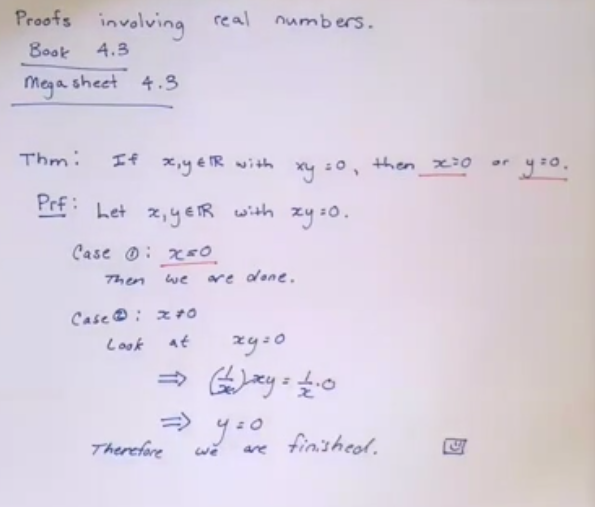 Proofs involving real numbers.
Book 4.3
Mega sheet 4.3
Thm: If x,y∈ℝ with xy=0, then x=0 or y=0.
Prf: Let x,y∈ℝ with xy=0.
Case ①: x=0
Then we are done.
Case ②: x≠0
Look at xy=0
⇒ (1/x)xy = 1/x·0
⇒ y=0
Therefore we are finished.